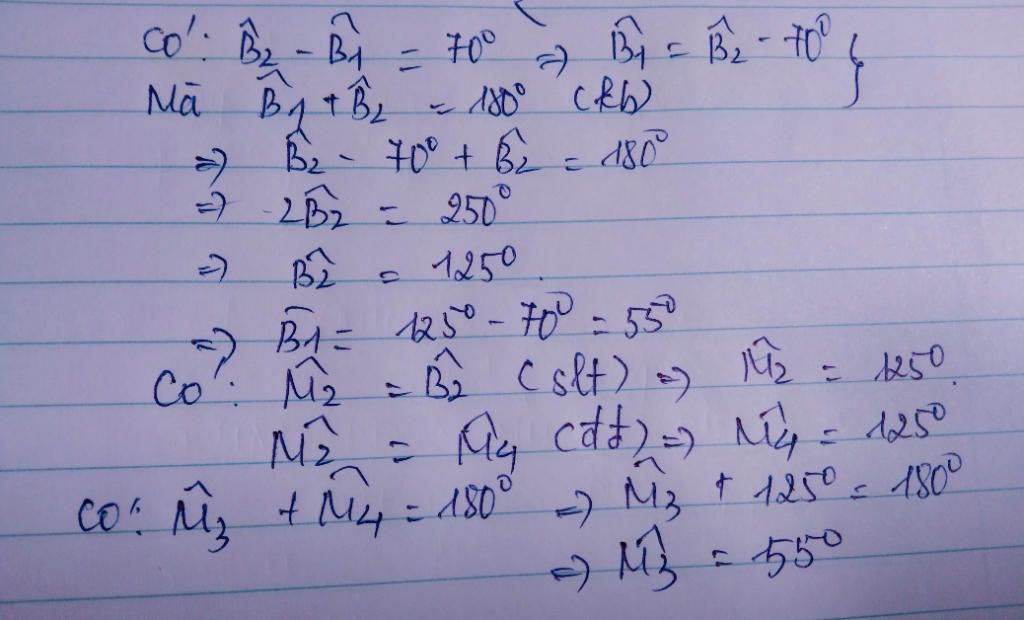 Có: B̂₂ - B̂₁ = 70⁰ => B̂₁ = B̂₂ - 70⁰ }
Mà B̂₁ + B̂₂ = 180⁰ (kb)
=> B̂₂ - 70⁰ + B̂₂ = 180⁰
=> 2B̂₂ = 250⁰
=> B̂₂ = 125⁰.
=> B̂₁ = 125⁰ - 70⁰ = 55⁰
Có: M̂₂ = B̂₂ (slt) => M̂₂ = 125⁰.
M̂₂ = M̂₄ (đđ) => M̂₄ = 125⁰
Có: M̂₃ + M̂₄ = 180⁰ => M̂₃ + 125⁰ = 180⁰
=> M̂₃ = 55⁰